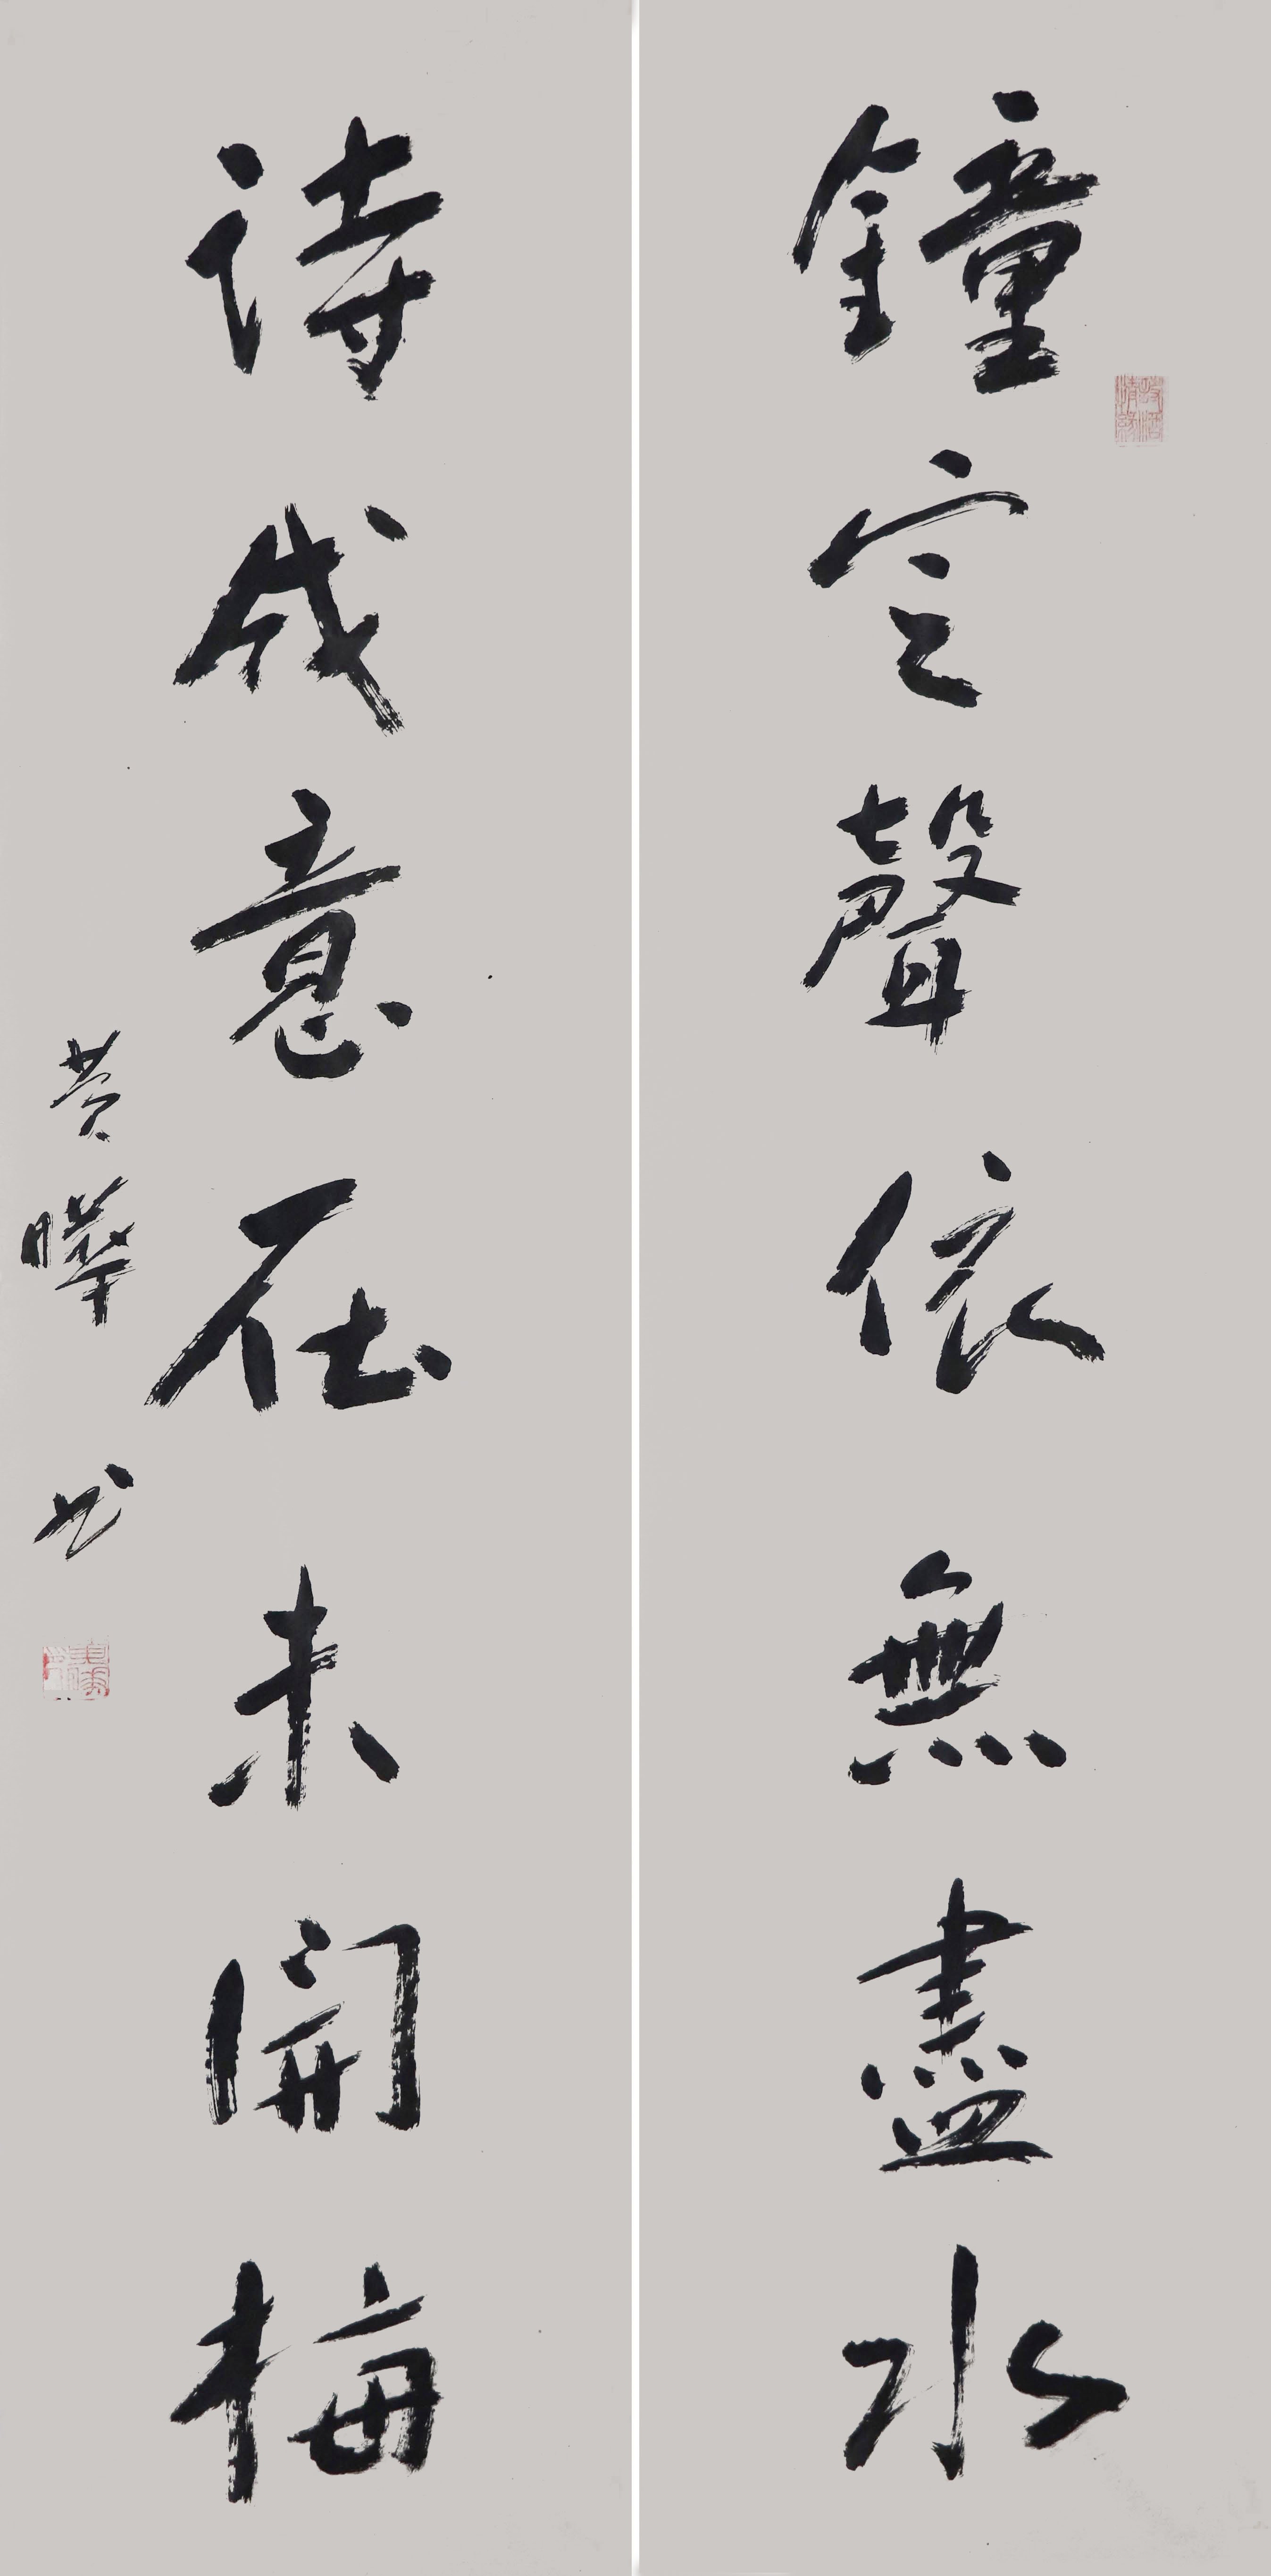 鐘定聲依無盡水
詩成意在未開梅
黄曄书